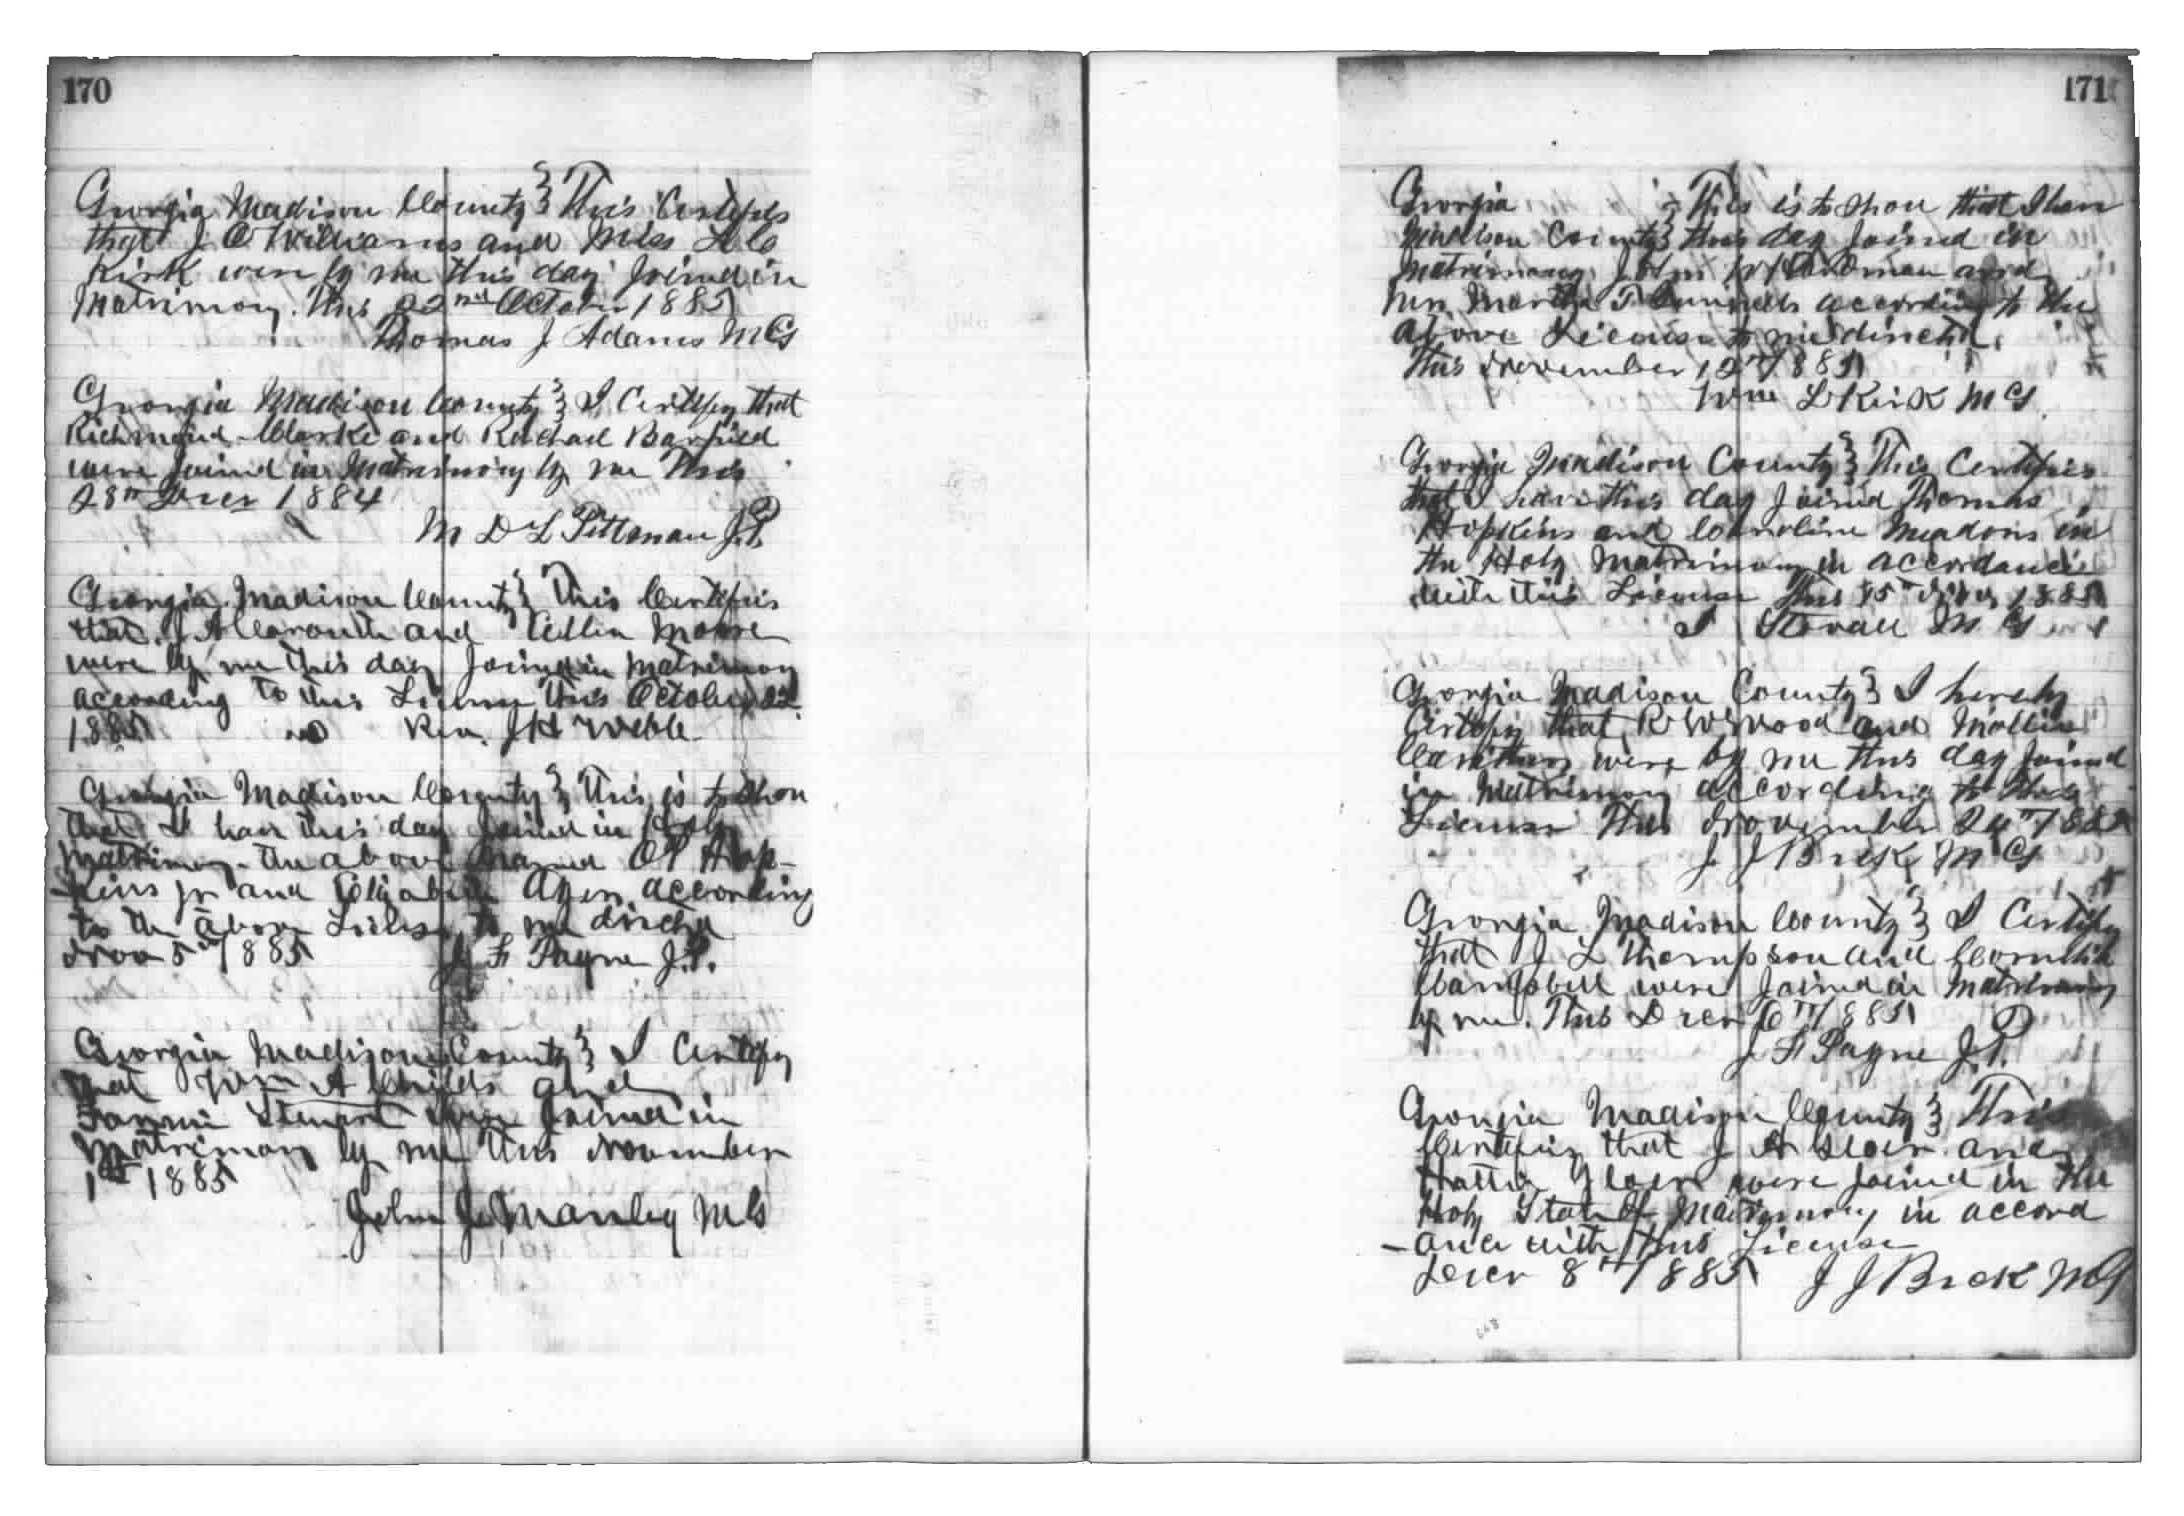 170
Georgia Madison County } This Certifys
that J O Williams and Miss
Kirk were by me this day Joined in
Matrimony. This 22nd October 1885
Thomas J Adams MG
Georgia Madison County } I Certify that
Richmond Clarke and Rachael Barfield
were Joined in Matrimony by me This
28th Decr 1884
M D L Pittman J.P.
Georgia Madison County } This Certifies
that J A and Moore
were by me this day Joined in Matrimony
according to this License this October 22
1885 Rev. J H Webb
Georgia Madison County } This is to show
that I have this day Joined in Holy
Matrimony the above named Hop-
-kins Jr and Elizabeth according
to the above License to me directed
Nov 5th 1885 J F Payne J.P.
Georgia Madison County } I Certify
that A Childs and
Fannie Stewart were Joined in
Matrimony by me This November
1st 1885
John J Manley MG
171
Georgia } This is to show that I have
Madison County } this day Joined in
Matrimony John W and
Mrs Martha T according to the
above License to me directed,
This November 1885
Wm L Kirk MG
Georgia Madison County } This Certifies
that I have this day Joined Thomas
Hopkins and Caroline Meadows in
the Holy Matrimony in accordance
with this License This 1885
Stovall MG
Georgia Madison County } I hereby
Certify that R W Wood and Mollie
were by me this day Joined
in Matrimony according to this
License This November 1885
J J MG
Georgia Madison County } I Certify
that J L Thompson and
Campbell were Joined in Matrimony
by me. This Decr 1885
J F Payne J.P.
Georgia Madison County } This
Certifys that J A and
Hattie were Joined in the
Holy State of Matrimony in accord
-ance with this License
Decr 8th 1885 J J MG